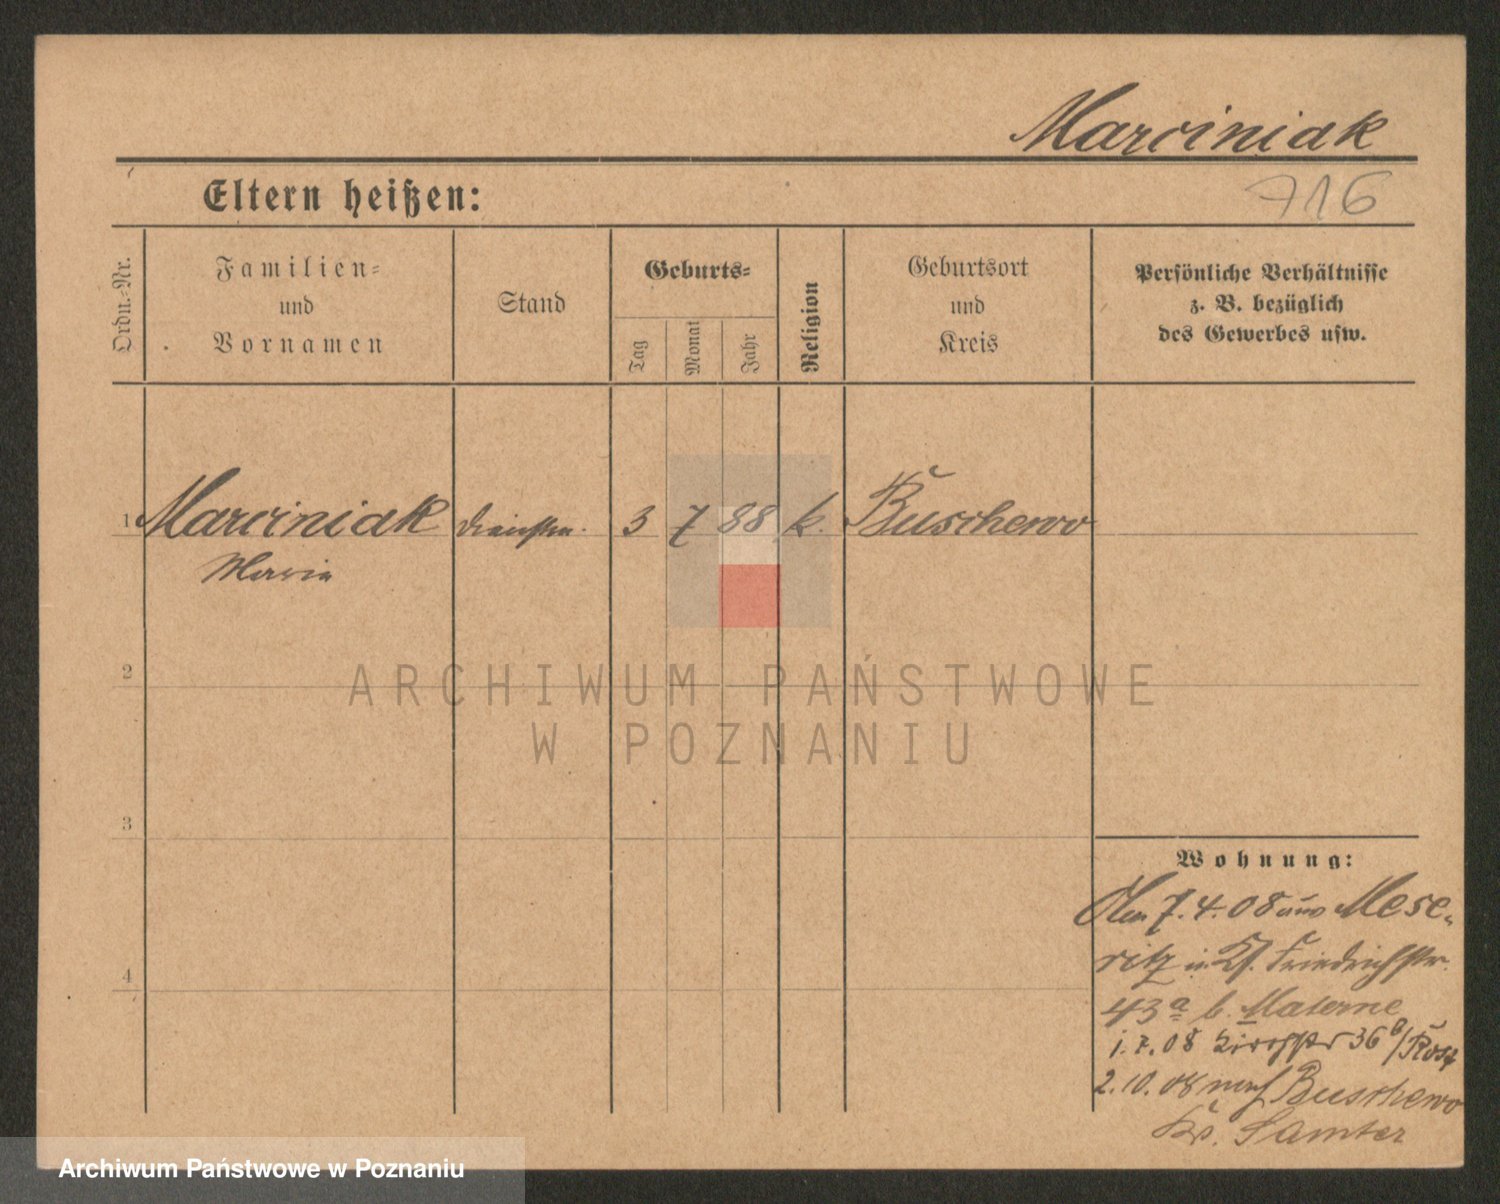 Marciniak
Eltern heißen:
716
Ordn.-Nr.
Familien-
und
Vornamen
Stand
Geburts-
Tag
Monat
Jahr
Religion
Geburtsort
und
Kreis
Persönliche Verhältnisse
z. B. bezüglich
des Gewerbes usw.
1 Marciniak 3 7 88 k. Buschewo
Maria
2
ARCHIWUM PAŃSTWOWE
W POZNANIU
3
Wohnung:
7.4.08 aus Mese-
ritz in Friedrichstr.
4
43a b. Materne
1.7.08 36
2.10.08 nach Buschewo
Kr. Samter
Archiwum Państwowe w Poznaniu